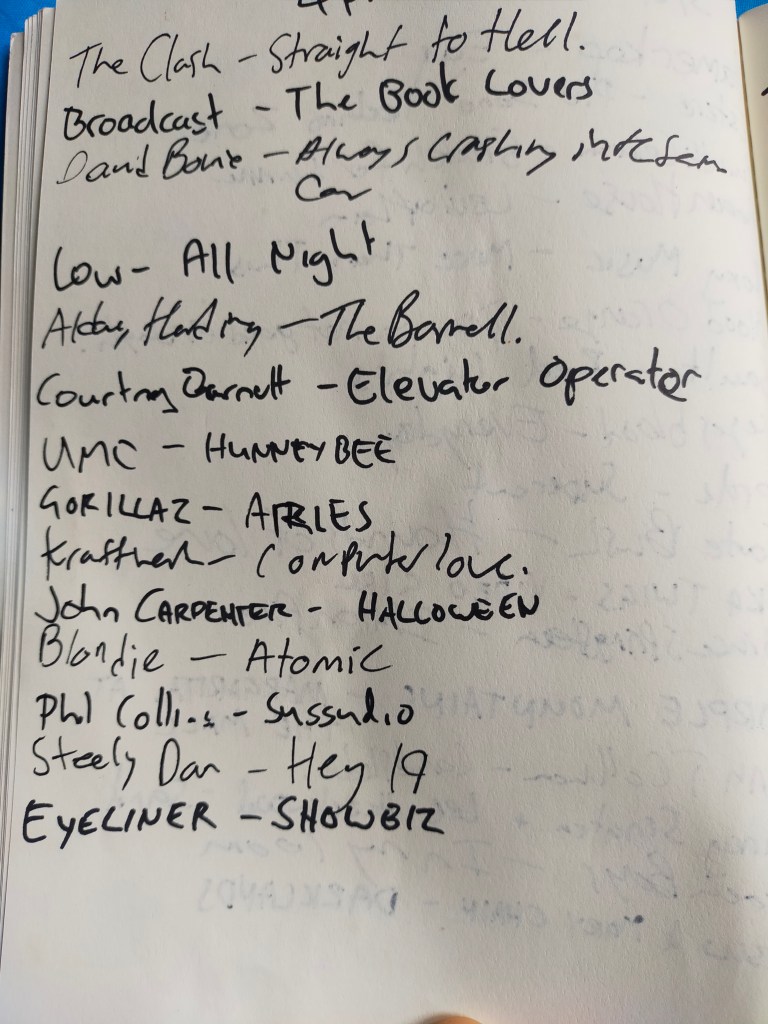 The Clash - Straight to Hell.
Broadcast - The Book Lovers
David Bowie - Always Crashing in the Same
Car
Low - All Night
Aldous Harding - The Barrell.
Courtney Barnett - Elevator Operator
UMO - HUNNEYBEE
GORILLAZ - ARIES
Kraftwerk - Computer love.
John CARPENTER - HALLOWEEN
Blondie - Atomic
Phil Collins - Sussudio
Steely Dan - Hey 19
EYELINER - SHOWBIZ